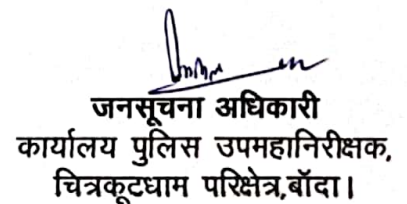 जनसूचना अधिकारी
कार्यालय पुलिस उपमहानिरीक्षक,
चित्रकूटधाम परिक्षेत्र,बॉदा।